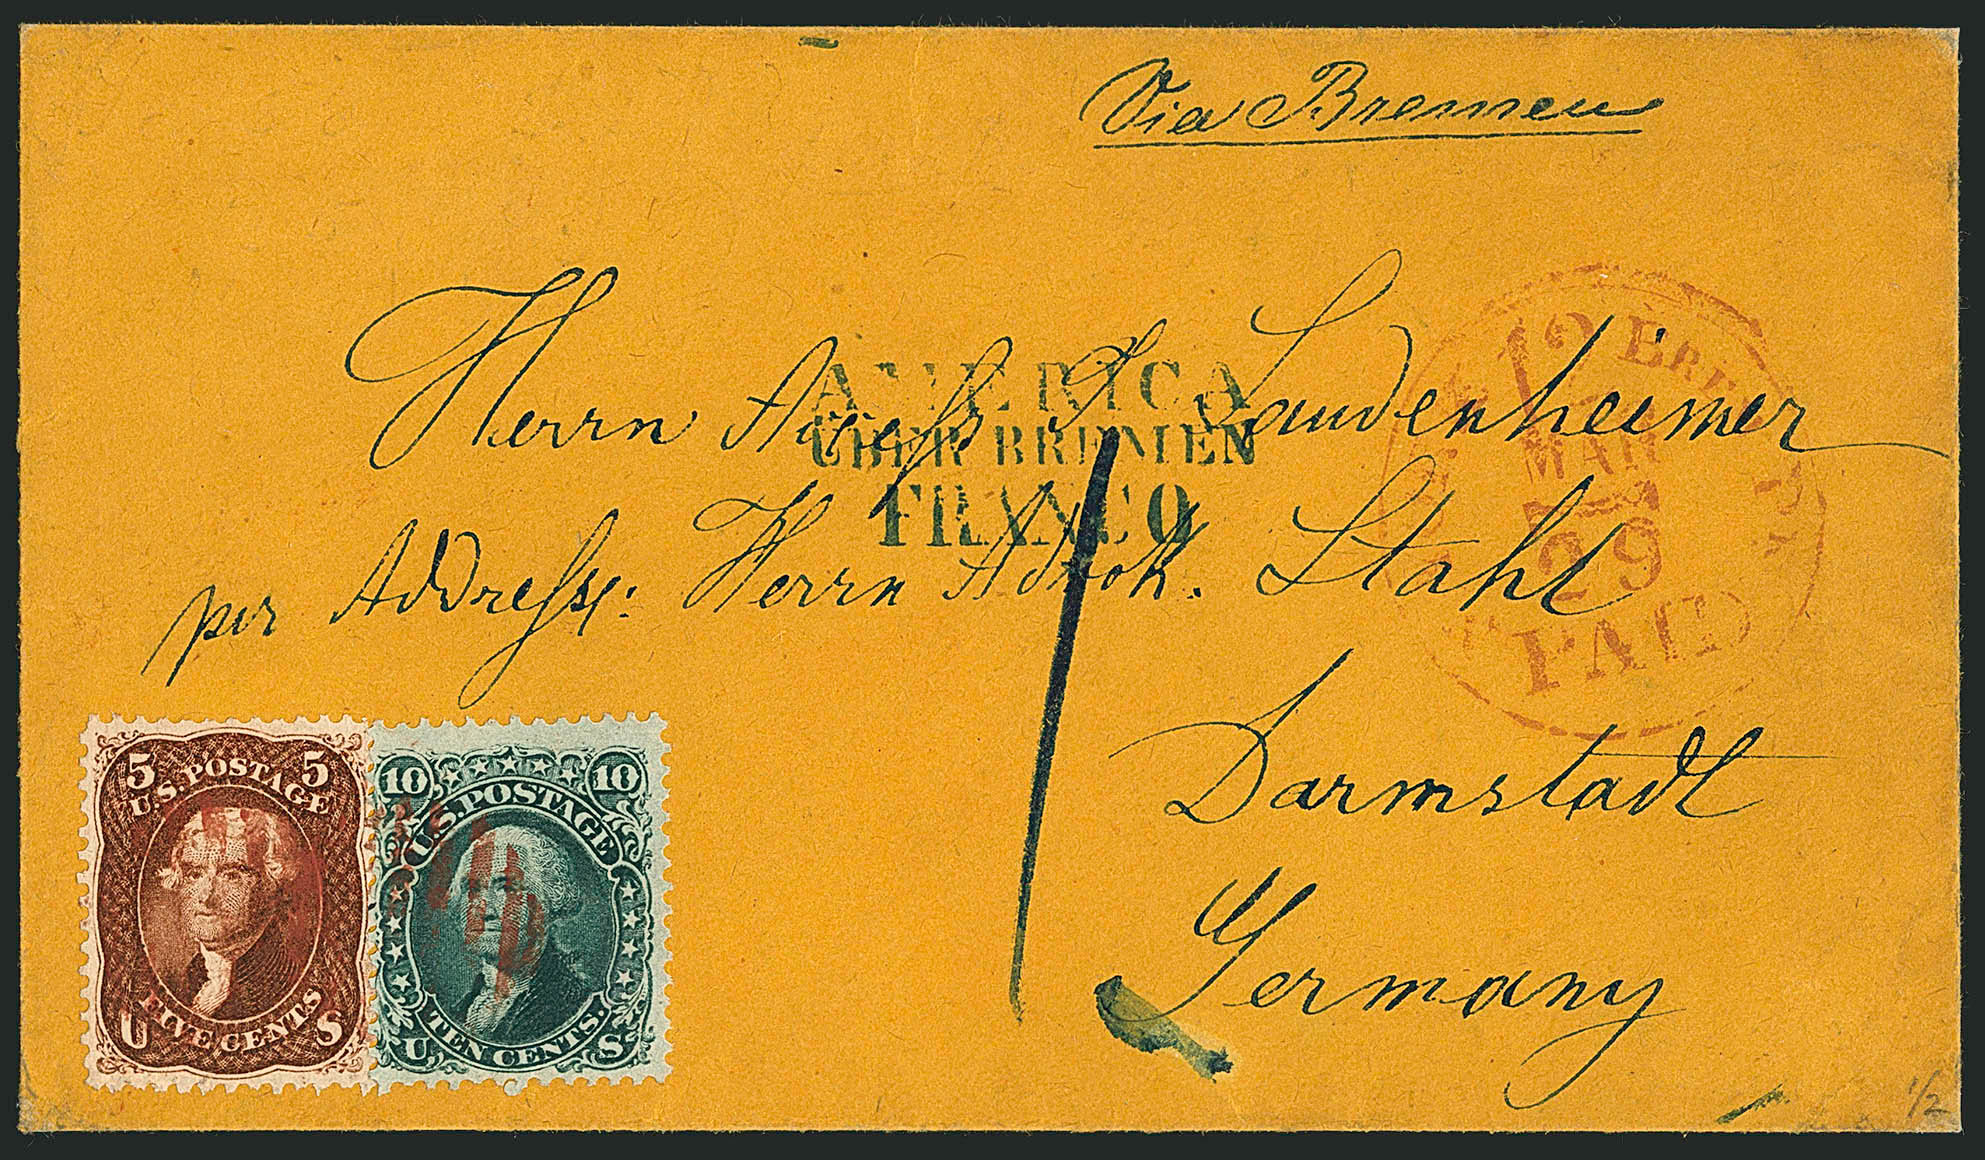 Via Bremen
AMERICA
ÜBER BREMEN
FRANCO
Herrn Assess. L. Laudenheimer
per Addresse: Herrn Advok. Stahl
Darmstadt
Germany
12
MAR
29
PAID
5 5
U.S. POSTAGE
FIVE CENTS
U S
10 10
U.S. POSTAGE
TEN CENTS.
U. S.
1/2